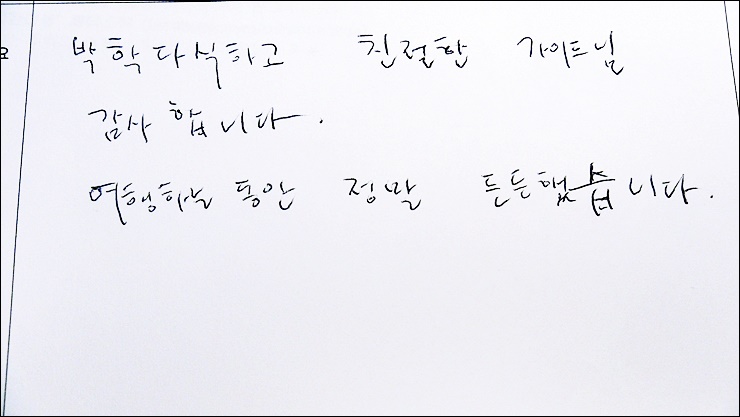 박학다식하고 친절한 가이드님
감사합니다.
여행하는 동안 정말 든든했습니다.